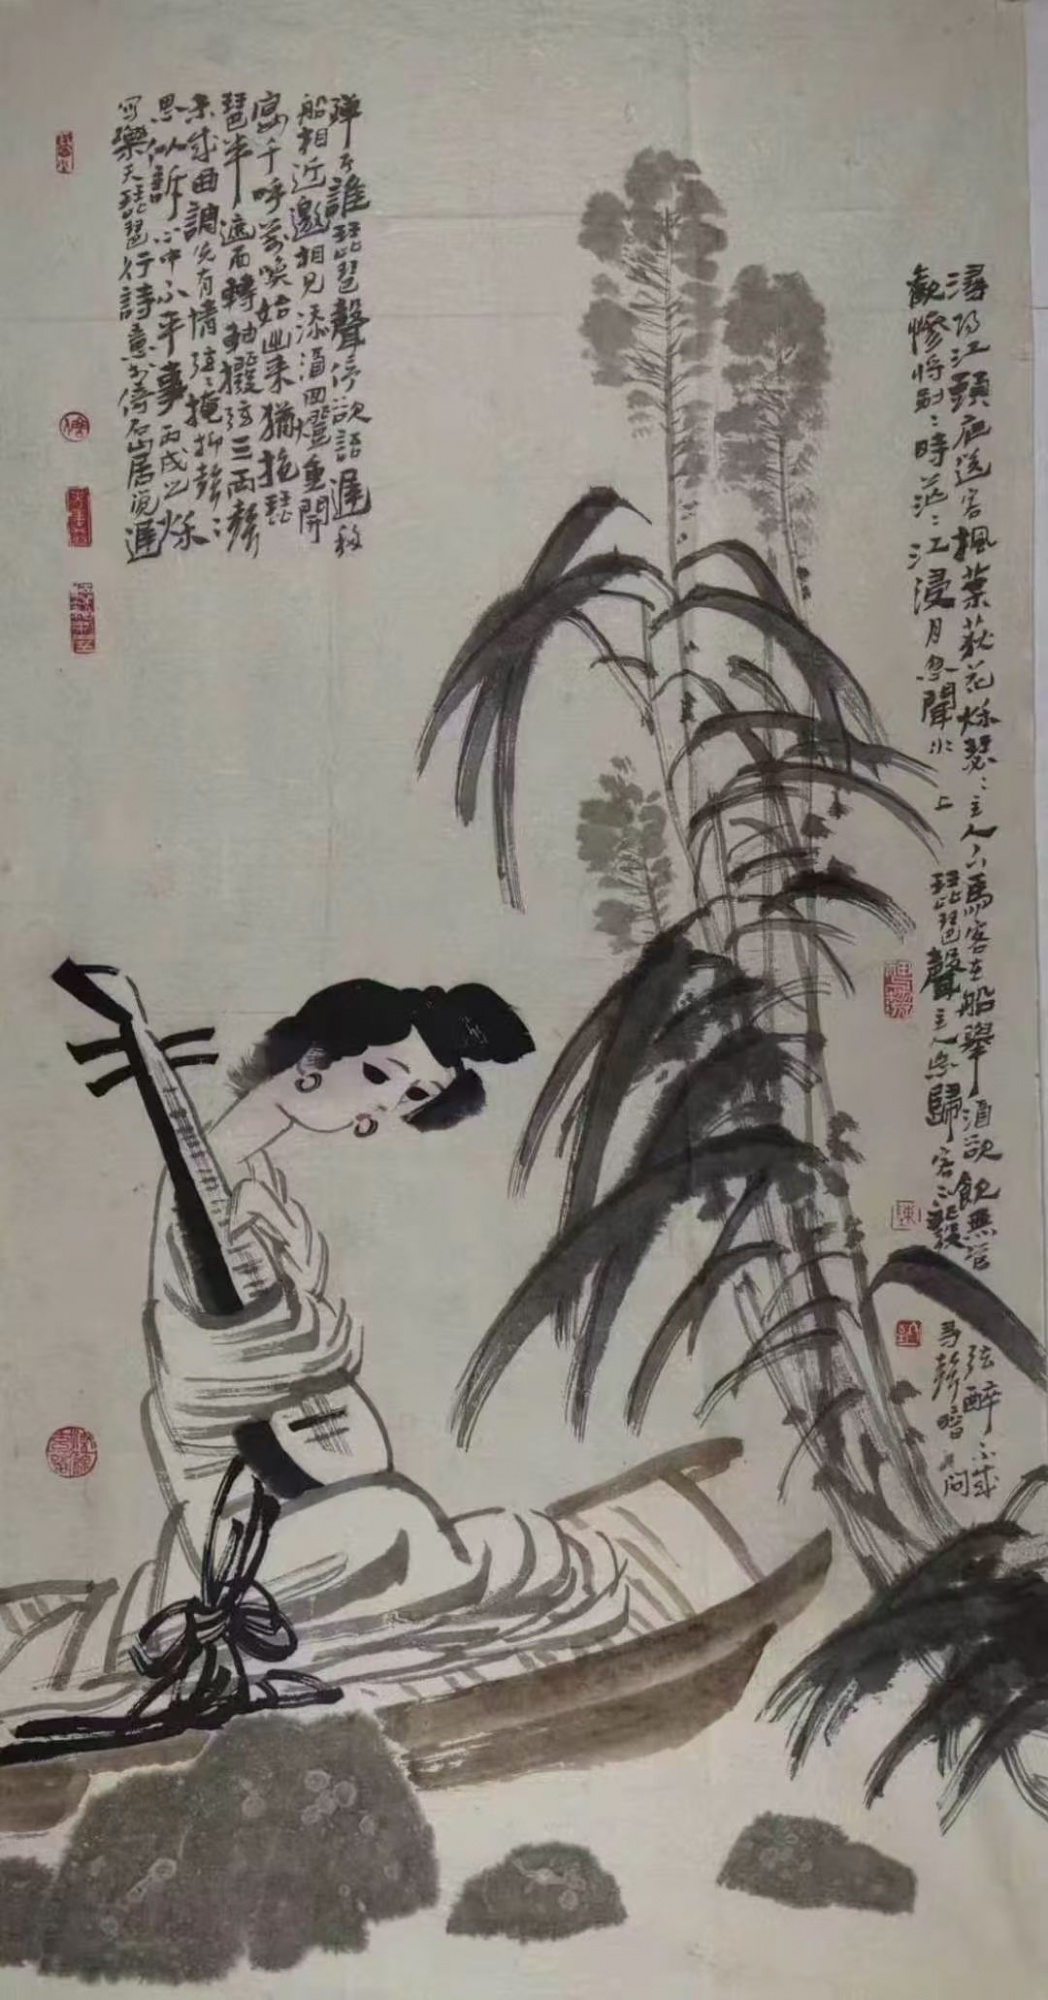 潯阳江頭夜送客楓葉荻花秋瑟々主人下馬客在船舉酒欲飲無管弦醉不成
歡慘將別々時茫々江浸月忽聞水上琵琶聲主人忘歸客不發尋聲暗問
彈者誰琵琶聲停欲語遲移
船相近邀相見添酒回燈重開
宴千呼萬喚始出来猶抱琵
琶半遮面轉軸撥弦三兩聲
未成曲調先有情弦々掩抑聲々
思似訴心中不平事丙戌之秋
寫樂天琵琶行詩意於倚石山居